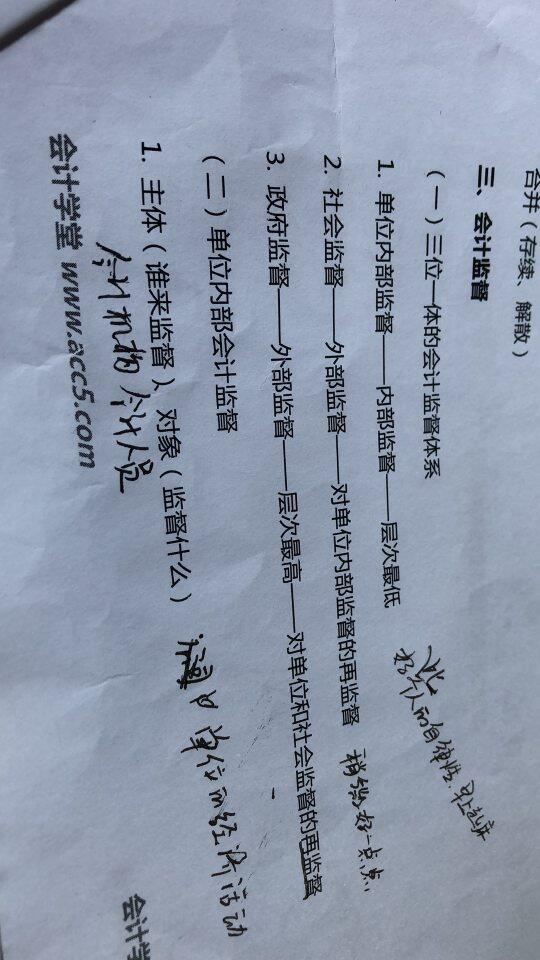 合并（存续、解散）
三、会计监督
（一）三位一体的会计监督体系
1. 单位内部监督——内部监督——层次最低
2. 社会监督——外部监督——对单位内部监督的再监督 稍微好一点点
3. 政府监督——外部监督——层次最高——对单位和社会监督的再监督
（二）单位内部会计监督
1. 主体（谁来监督）、对象（监督什么） 单位的经济活动
会计机构 会计人员
会计学堂 www.acc5.com
会计学